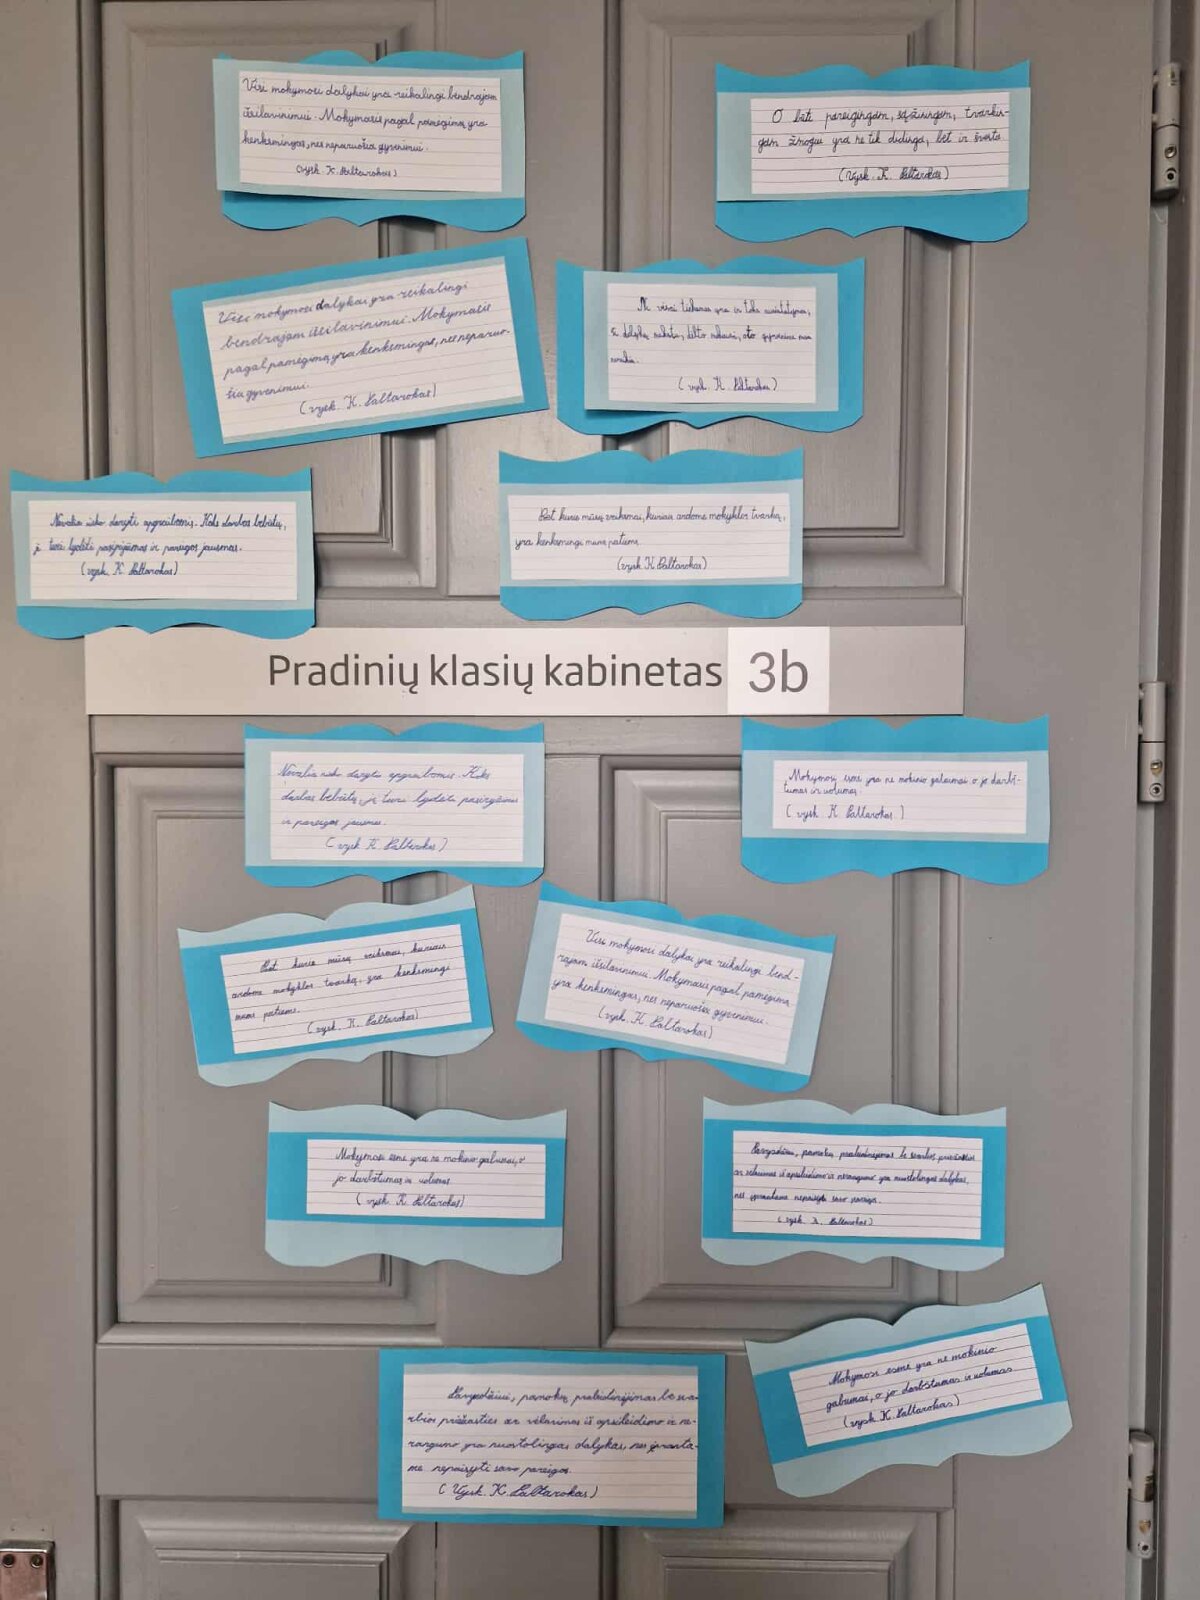 Visi mokymosi dalykai yra reikalingi bendrajam
išsilavinimui. Mokymasis pagal pamėgimą yra
kenksmingas, nes neparuošia gyvenimui.
(vysk. K. Paltarokas)
O būti pareigingam, sąžiningam, tvarkin-
gam žmogui yra ne tik didinga, bet ir šventa.
(Vysk. K. Paltarokas)
Visi mokymosi dalykai yra reikalingi
bendrajam išsilavinimui. Mokymasis
pagal pamėgimą yra kenksmingas, nes neparuo-
šia gyvenimui.
(vysk. K. Paltarokas)
yra ir toks
dalykų
(vysk. K. Paltarokas)
Nevalia nieko daryti apgraibomis. Koks darbas bebūtų,
jį turi lydėti pasiryžimas ir pareigos jausmas.
(vysk. K. Paltarokas)
Bet kurie mūsų veiksmai, kuriais ardome mokyklos tvarką,
yra kenksmingi mums patiems.
(vysk. K. Paltarokas)
Pradinių klasių kabinetas 3b
Nevalia nieko daryti apgraibomis. Koks
darbas bebūtų, jį turi lydėti pasiryžimas
ir pareigos jausmas.
(vysk. K. Paltarokas)
Mokymosi esmė yra ne mokinio gabumai o jo darbš-
tumas ir uolumas.
(vysk. K. Paltarokas)
Bet kurie mūsų veiksmai, kuriais
ardome mokyklos tvarką, yra kenksmingi
mums patiems.
(vysk. K. Paltarokas)
Visi mokymosi dalykai yra reikalingi bend-
rajam išsilavinimui. Mokymasis pagal pamėgimą
yra kenksmingas, nes neparuošia gyvenimui.
(vysk. K. Paltarokas)
Mokymosi esmė yra ne mokinio gabumai, o
jo darbštumas ir uolumas.
(vysk. K. Paltarokas)
Pavyzdžiui, pamokų praleidinėjimas be svarbios priežasties
ar vėlavimas iš apsileidimo ir nerangumo yra nuostolingas dalykas,
nes įprantama nepaisyti savo pareigos.
(vysk. K. Paltarokas)
Pavyzdžiui, pamokų praleidinėjimas be sva-
rbios priežasties ar vėlavimas iš apsileidimo ir ne-
rangumo yra nuostolingas dalykas, nes įpranta-
me nepaisyti savo pareigos.
(Vysk. K. Paltarokas)
Mokymosi esmė yra ne mokinio
gabumai, o jo darbštumas ir uolumas
(vysk. K. Paltarokas)